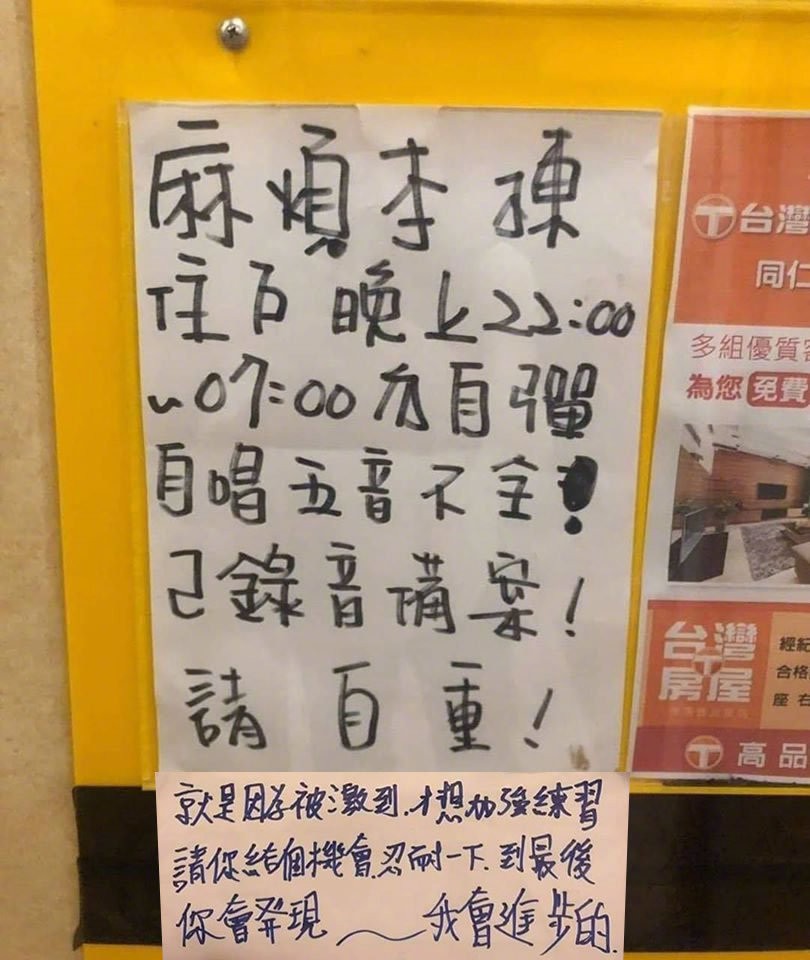 麻煩李棟
住戶晚上22:00
~07:00勿自彈
自唱五音不全!
已錄音備案!
請自重!
就是因為被激到.才想加強練習
請你給個機會.忍耐一下.到最後
你會發現～我會進步的.
台灣
同仁
多組優質
為您 免費
台灣
房屋
經紀
合格
座右
高品